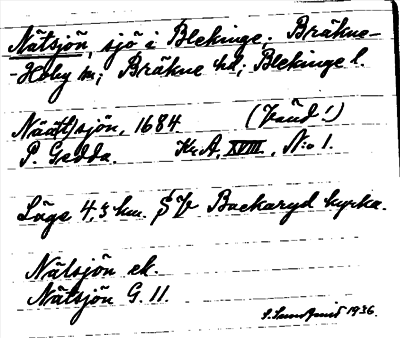 Nätsjön, sjö i Blekinge; Bräkne-
-Hoby sn; Bräkne hd; Blekinge l.
Näät(t)sjön, 1684 (Väud!)
P. Gedda. Kr.A. XVIII, N:o 1.
Läge 4,3 km. SV Backaryd kyrka.
Nätsjön ek.
Nätsjön G. 11.
1936.